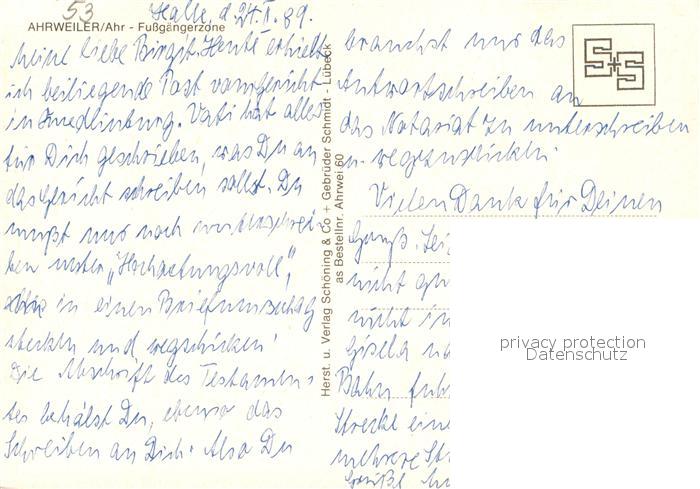 53
Halle, d. 24.1.89.
AHRWEILER/Ahr - Fußgängerzone
Meine liebe Birgit. Heute erhielt
ich beiliegende Post vom Gericht
in Quedlinburg. Vati hat alles
für Dich geschrieben, was Du an
das Gericht schreiben sollst. Du
mußt nur noch unterschrei-
ben unter „Hochachtungsvoll",
in einen Briefumschlag
stecken und wegschicken!
Die Abschrift des Testamen-
tes behälst Du, ebenso das
Schreiben an Dich. Also Du
Herst. u. Verlag Schöning & Co + Gebrüder Schmidt - Lübeck
as Bestellnr. Ahrwei 60
brauchst nur das
Antwortschreiben an
das Notariat zu unterschreiben
u. wegzuschicken.
Vielen Dank für Deinen
Gruß.
nicht
nicht in
Gisela
Bahn
Strecke eine
mehrere
Grüße
S+S
privacy protection
Datenschutz